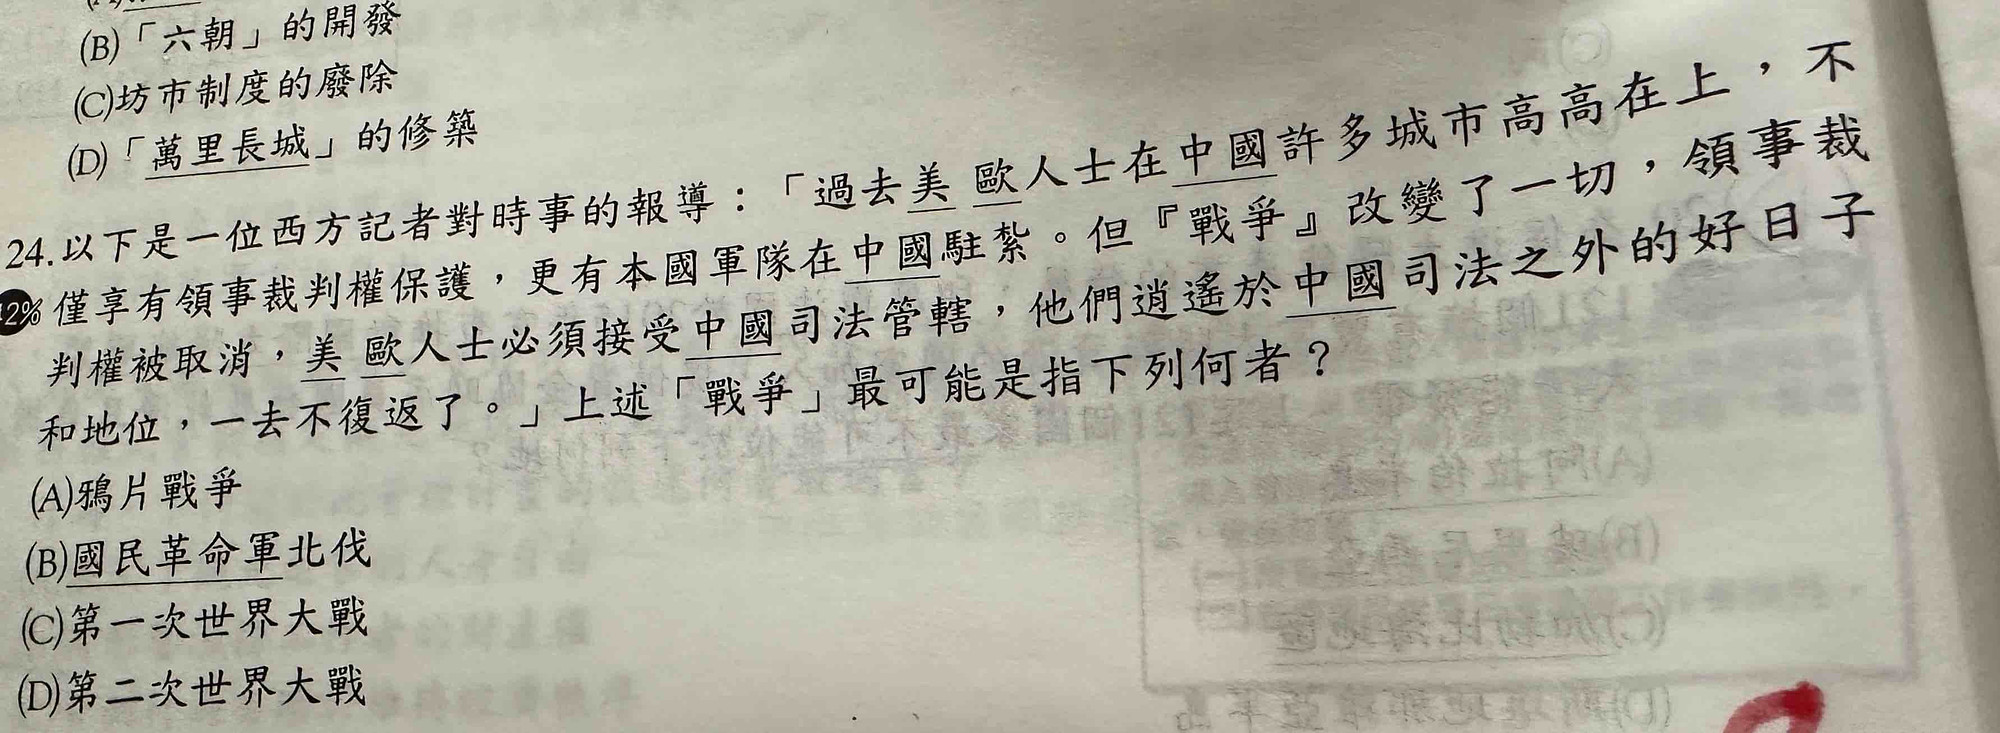 (B)「六朝」的開發
(C)坊市制度的廢除
(D)「萬里長城」的修築
24.以下是一位西方記者對時事的報導：「過去美 歐人士在中國許多城市高高在上，不
僅享有領事裁判權保護，更有本國軍隊在中國駐紮。但『戰爭』改變了一切，領事裁
判權被取消，美 歐人士必須接受中國司法管轄，他們逍遙於中國司法之外的好日子
和地位，一去不復返了。」上述「戰爭」最可能是指下列何者？
(A)鴉片戰爭
(B)國民革命軍北伐
(C)第一次世界大戰
(D)第二次世界大戰